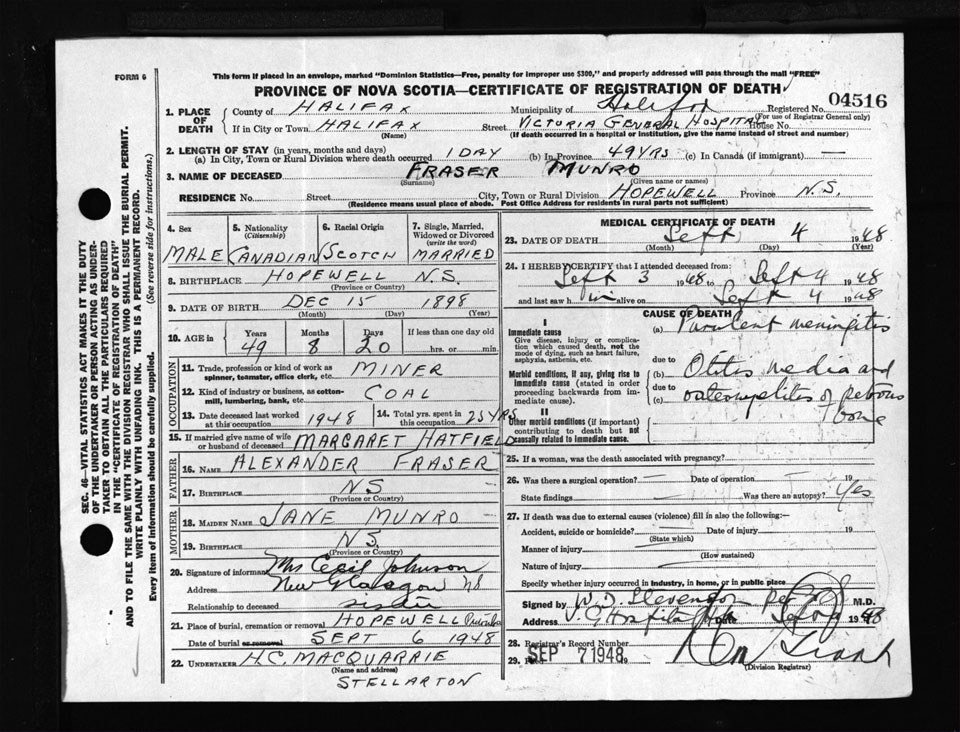 FORM 6
This form if placed in an envelope, marked "Dominion Statistics—Free, penalty for improper use $300," and properly addressed will pass through the mail "FREE"
PROVINCE OF NOVA SCOTIA—CERTIFICATE OF REGISTRATION OF DEATH
04516
1. PLACE OF DEATH
County of HALIFAX Municipality of Halifax Registered No.
(For use of Registrar General only)
If in City or Town HALIFAX Street VICTORIA GENERAL HOSPITAL House No.
(Name) (If death occurred in a hospital or institution, give the name instead of street and number)
2. LENGTH OF STAY (in years, months and days)
(a) In City, Town or Rural Division where death occurred 1 DAY (b) In Province 49 YRS (c) In Canada (if immigrant) —
3. NAME OF DECEASED FRASER MUNRO
(Surname) (Given name or names)
RESIDENCE No. Street City, Town or Rural Division HOPEWELL Province N.S.
(Residence means usual place of abode. Post Office Address for residents in rural parts not sufficient)
4. Sex 5. Nationality (Citizenship) 6. Racial Origin 7. Single, Married, Widowed or Divorced (write the word)
MALE CANADIAN SCOTCH MARRIED
8. BIRTHPLACE HOPEWELL N.S.
(Province or Country)
9. DATE OF BIRTH DEC 15 1898
(Month) (Day) (Year)
10. AGE in Years Months Days If less than one day old
49 8 20 hrs. or min.
OCCUPATION
11. Trade, profession or kind of work as spinner, teamster, office clerk, etc. MINER
12. Kind of industry or business, as cotton-mill, lumbering, bank, etc. COAL
13. Date deceased last worked at this occupation 1948 14. Total yrs. spent in this occupation 25 YRS
15. If married give name of wife or husband of deceased MARGARET HATFIELD
FATHER
16. NAME ALEXANDER FRASER
17. BIRTHPLACE NS
(Province or Country)
MOTHER
18. MAIDEN NAME JANE MUNRO
19. BIRTHPLACE NS
(Province or Country)
20. Signature of informant Mrs Cecil Johnson
Address New Glasgow NS
Relationship to deceased sister
21. Place of burial, cremation or removal HOPEWELL
Date of burial or removal SEPT 6 1948
22. UNDERTAKER H.C. MACQUARRIE
(Name and address)
STELLARTON
MEDICAL CERTIFICATE OF DEATH
23. DATE OF DEATH Sept 4 1948
(Month) (Day) (Year)
24. I HEREBY CERTIFY that I attended deceased from
Sept 3 1948 to Sept 4 1948
and last saw him alive on Sept 4 1948
CAUSE OF DEATH
I
Immediate cause
Give disease, injury or complication which caused death, not the mode of dying, such as heart failure, asphyxia, asthenia, etc.
(a) Purulent meningitis
due to
Morbid conditions, if any, giving rise to immediate cause (stated in order proceeding backwards from immediate cause).
(b) Otitis media and
due to
(c) osteomyelitis of petrous bone
II
Other morbid conditions (if important) contributing to death but not causally related to immediate cause.
25. If a woman, was the death associated with pregnancy?
26. Was there a surgical operation? — Date of operation — 19
State findings — Was there an autopsy? Yes
27. If death was due to external causes (violence) fill in also the following:
Accident, suicide or homicide? Date of injury 19
(State which)
Manner of injury
(How sustained)
Nature of injury
Specify whether injury occurred in industry, in home, or in public place
Signed by W. D. Stevenson M.D.
Address V. G. Hospital Date 1948
28. Registrar's Record Number
29. SEP 7 1948 19
(Division Registrar)
SEC. 46—VITAL STATISTICS ACT MAKES IT THE DUTY
OF THE UNDERTAKER OR PERSON ACTING AS UNDER-
TAKER TO OBTAIN ALL THE PARTICULARS REQUIRED
IN THE "CERTIFICATE OF REGISTRATION OF DEATH"
AND TO FILE THE SAME WITH THE DIVISION REGISTRAR WHO SHALL ISSUE THE BURIAL PERMIT.
WRITE PLAINLY WITH UNFADING INK. THIS IS A PERMANENT RECORD.
Every item of information should be carefully supplied. (See reverse side for instructions.)